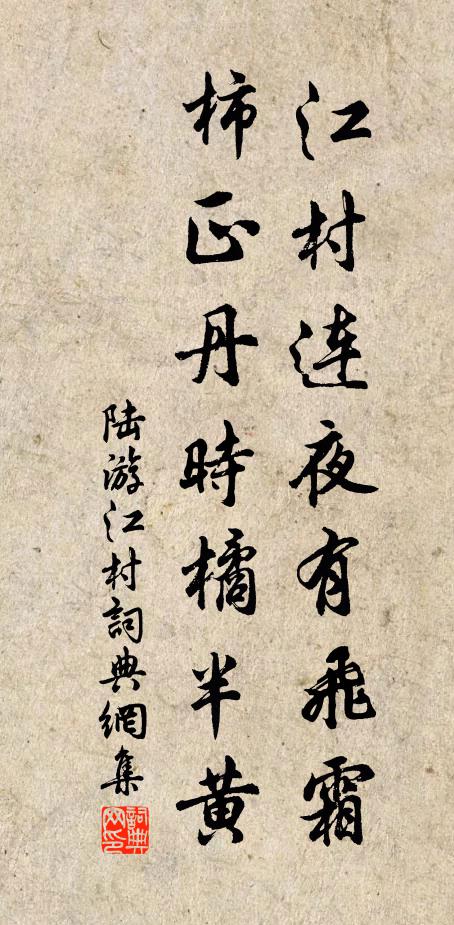 江村連夜有飛霜
柿正丹時橘半黃
陸游江村詞典網集
詞典網印